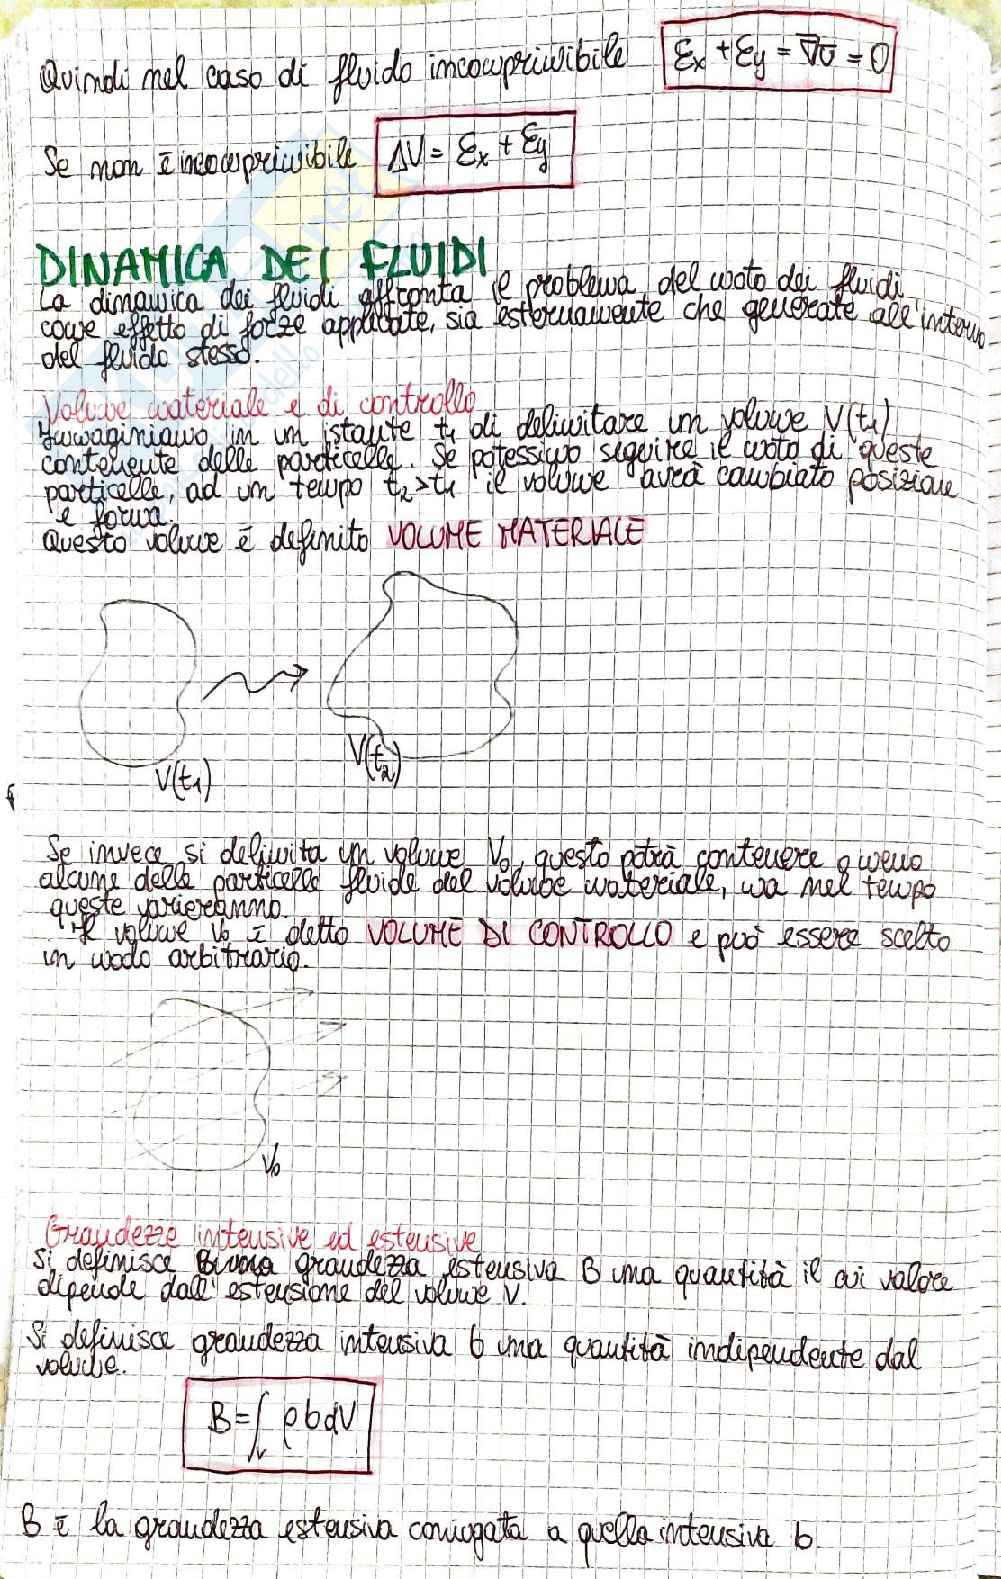 Quindi nel caso di fluido incomprimibile εx + εy = ∇̄v̄ = 0
Se non è incomprimibile ΔV = εx + εy
DINAMICA DEI FLUIDI
La dinamica dei fluidi affronta il problema del moto dei fluidi
come effetto di forze applicate, sia esternamente che generate all'interno
del fluido stesso.
Volume materiale e di controllo
Immaginiamo in un istante t1 di delimitare un volume V(t1)
contenente delle particelle. Se potessimo seguire il moto di queste
particelle, ad un tempo t2>t1 il volume avrà cambiato posizione
e forma.
Questo volume è definito VOLUME MATERIALE
V(t1)
V(t2)
Se invece si delimita un volume V0, questo potrà contenere o meno
alcune delle particelle fluide del volume materiale, ma nel tempo
queste varieranno.
Il volume V0 è detto VOLUME DI CONTROLLO e può essere scelto
in modo arbitrario.
V0
Grandezze intensive ed estensive
Si definisce grandezza estensiva B una quantità il cui valore
dipende dall'estensione del volume V.
Si definisce grandezza intensiva b una quantità indipendente dal
volume.
B = ∫V ρ b dV
B è la grandezza estensiva coniugata a quella intensiva b